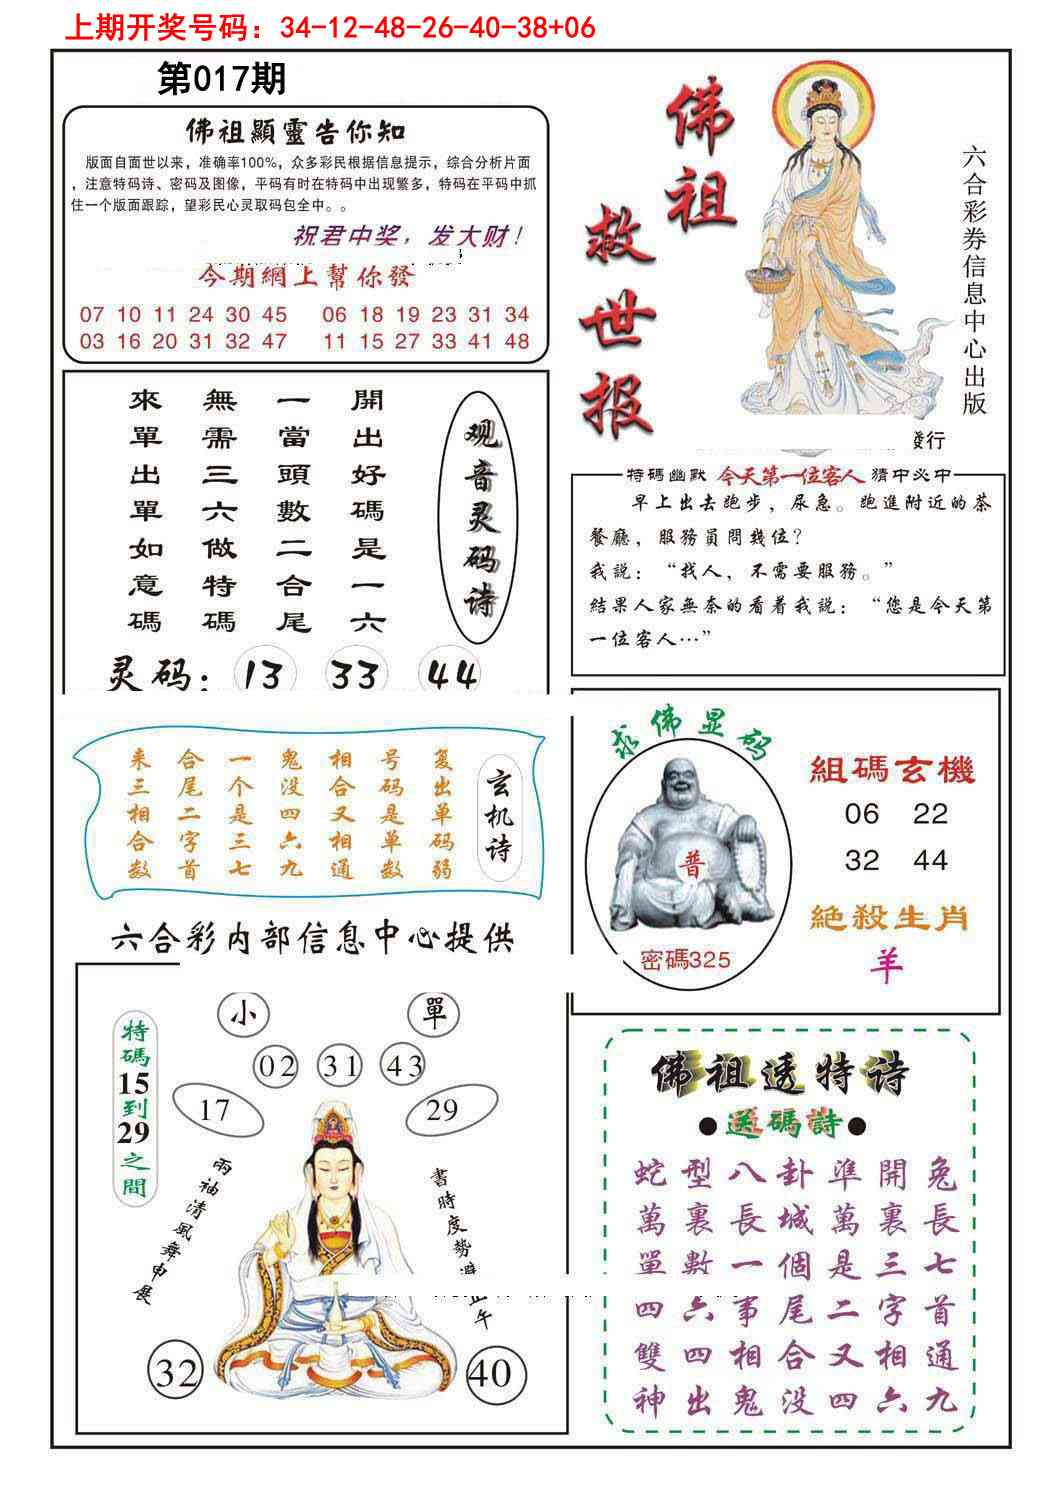 上期开奖号码：34-12-48-26-40-38+06
第017期
佛祖顯靈告你知
版面自面世以来，准确率100%，众多彩民根据信息提示，综合分析片面
，注意特码诗、密码及图像，平码有时在特码中出现繁多，特码在平码中抓
住一个版面跟踪，望彩民心灵取码包全中。。
祝君中奖，发大财！
今期網上幫你發
07 10 11 24 30 45 06 18 19 23 31 34
03 16 20 31 32 47 11 15 27 33 41 48
佛祖
救世报
六合彩券信息中心出版
行
观音灵码诗
開出好碼是一六
一當頭數二合尾
無需三六做特碼
來單出單如意碼
灵码：13 33 44
特碼幽默 今天第一位客人 猜中必中
早上出去跑步，尿急。跑進附近的茶
餐廳，服務員問幾位？
我説：“找人，不需要服務。”
結果人家無奈的看着我説：“您是今天第
一位客人…”
玄机诗
复出单码弱
号码是单数
相合又相通
鬼没四六九
一个是三七
合尾二字首
来三相合数
求佛显码
普
密碼325
組碼玄機
06 22
32 44
絕殺生肖
羊
六合彩内部信息中心提供
小 單
02 31 43
17 29
特碼15到29之間
兩袖清風舞申展
書時度勢
午
32 40
佛祖透特诗
●送碼詩●
蛇型八卦準開兔
萬裏長城萬裏長
單數一個是三七
四六事尾二字首
雙四相合又相通
神出鬼没四六九